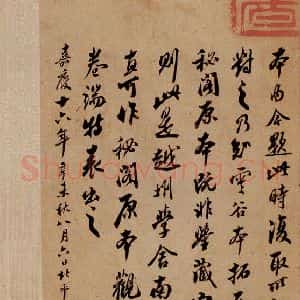 本因合題此時復取所
對之乃知雲谷本拓
秘閣原本既非瑩藏
則此是越州學舍南
直可作秘閣原本觀
卷端特表出之
嘉慶十六年辛未秋八月六日北平